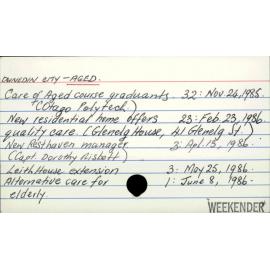 DUNEDIN CITY - AGED.
Care of Aged course graduants 32: Nov 26, 1985
(Otago Polytech.)
New residential home offers 23: Feb 23, 1986
quality care. (Glenelg House, 41 Glenelg St.)
New Resthaven manager 3: Apl. 15, 1986.
(Capt. Dorothy Nisbett)
Leith House extension 3: May 25, 1986.
Alternative care for 1: June 8, 1986.
elderly.
WEEKENDER